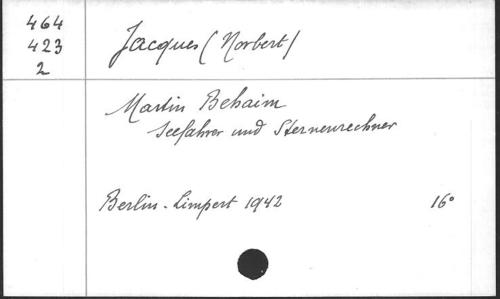 464
423
2
Jacques (Norbert)
Martin Behaim
Seefahrer und Sternenrechner
Berlin - Limpert 1942 16°